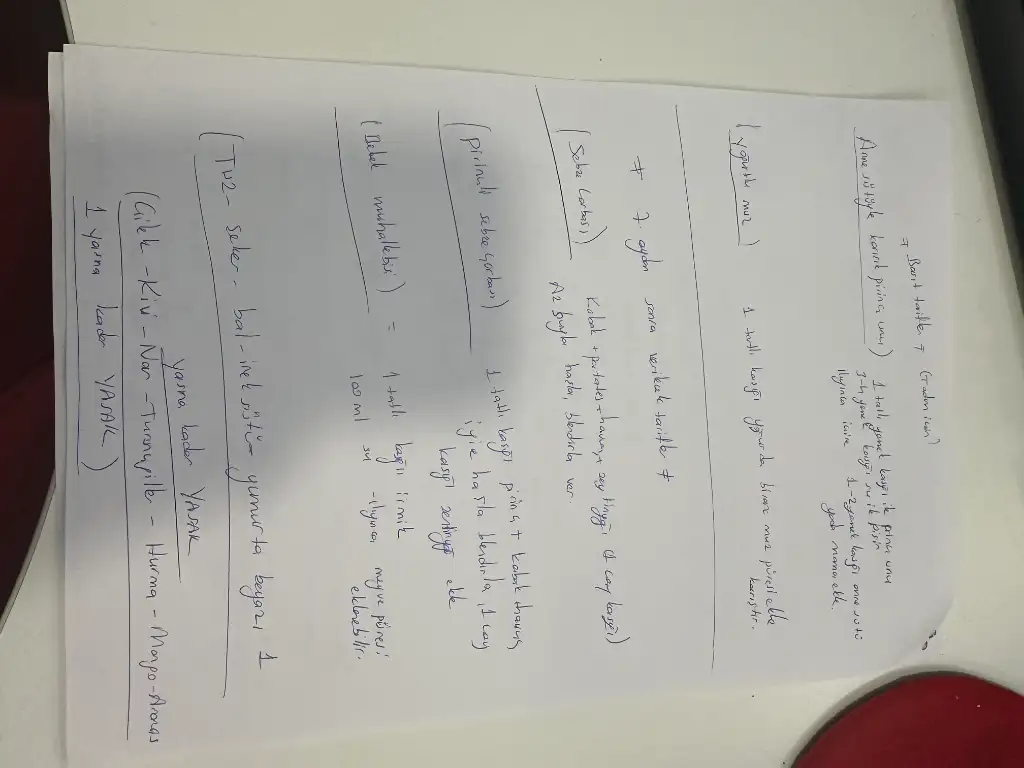 * Basit tarifler * (6 ndan itibaren)
Anne sütüyle karışık pirinç unu) 1 tatlı yemek kaşığı ile pirinç unu
3-4 yemek kaşığı su ile pişir
ılıyınca içine 1-2 yemek kaşığı anne sütü
yada mama ekle.
(Yoğurtlu muz) 1 tatlı kaşığı yoğurda biraz muz püresi ekle
karıştır.
* 7. aydan sonra verilecek tarifler *
(Sebze Çorbası) Kabak + patates + havuç + zeytinyağı (1 çay kaşığı)
Az suyla haşla, blendırla ver.
(Pirinçli sebze çorbası) 1 tatlı kaşığı pirinç + kabak + havuç
iyice haşla blendırla, 1 çay
kaşığı zeytinyağı ekle
(Bebek muhallebisi) = 1 tatlı kaşığı irmik
100 ml su - ılıyınca meyve püresi
eklenebilir.
(Tuz - şeker - bal - inek sütü - yumurta beyazı 1
yaşına kadar YASAK
(Çilek - Kivi - Nar - Turunçgiller - Hurma - Mango - Ananas
1 yaşına kadar YASAK)